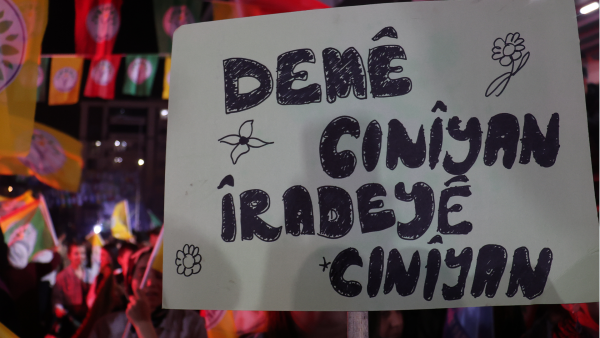 DEMÊ
CINÎYAN
ÎRADEYÊ
CINÎYAN